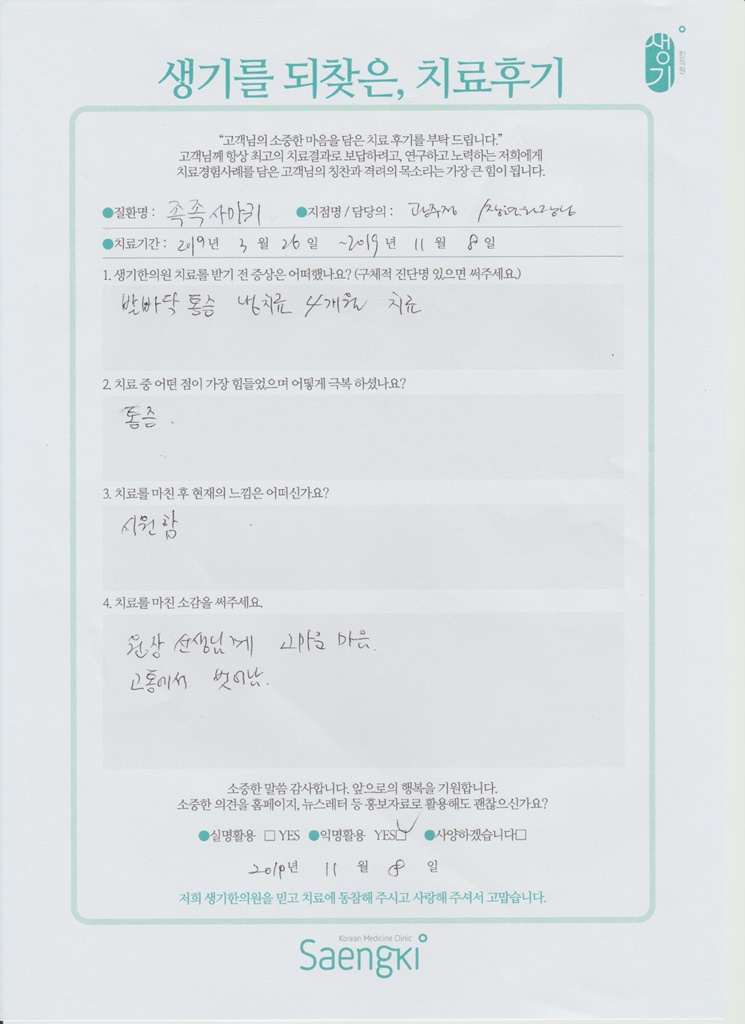 생기
한의원
생기를 되찾은, 치료후기
“고객님의 소중한 마음을 담은 치료 후기를 부탁 드립니다.”
고객님께 항상 최고의 치료결과로 보답하려고, 연구하고 노력하는 저희에게
치료경험사례를 담은 고객님의 칭찬과 격려의 목소리는 가장 큰 힘이 됩니다.
●질환명 : 족족사마귀 ●지점명 / 담당의 : 광주점 /
●치료기간 : 2019년 3월 26일 ~2019년 11월 8일
1. 생기한의원 치료를 받기 전 증상은 어떠했나요? (구체적 진단명 있으면 써주세요.)
발바닥 통증 냉치료 4개월 치료
2. 치료 중 어떤 점이 가장 힘들었으며 어떻게 극복 하셨나요?
통증.
3. 치료를 마친 후 현재의 느낌은 어떠신가요?
시원함
4. 치료를 마친 소감을 써주세요.
원장 선생님께 고마운 마음.
고통에서 벗어남.
소중한 말씀 감사합니다. 앞으로의 행복을 기원합니다.
소중한 의견을 홈페이지, 뉴스레터 등 홍보자료로 활용해도 괜찮으신가요?
●실명활용 □ YES ●익명활용 YES☑ ●사양하겠습니다□
2019년 11월 8일
저희 생기한의원을 믿고 치료에 동참해 주시고 사랑해 주셔서 고맙습니다.
Korean Medicine Clinic
Saengki